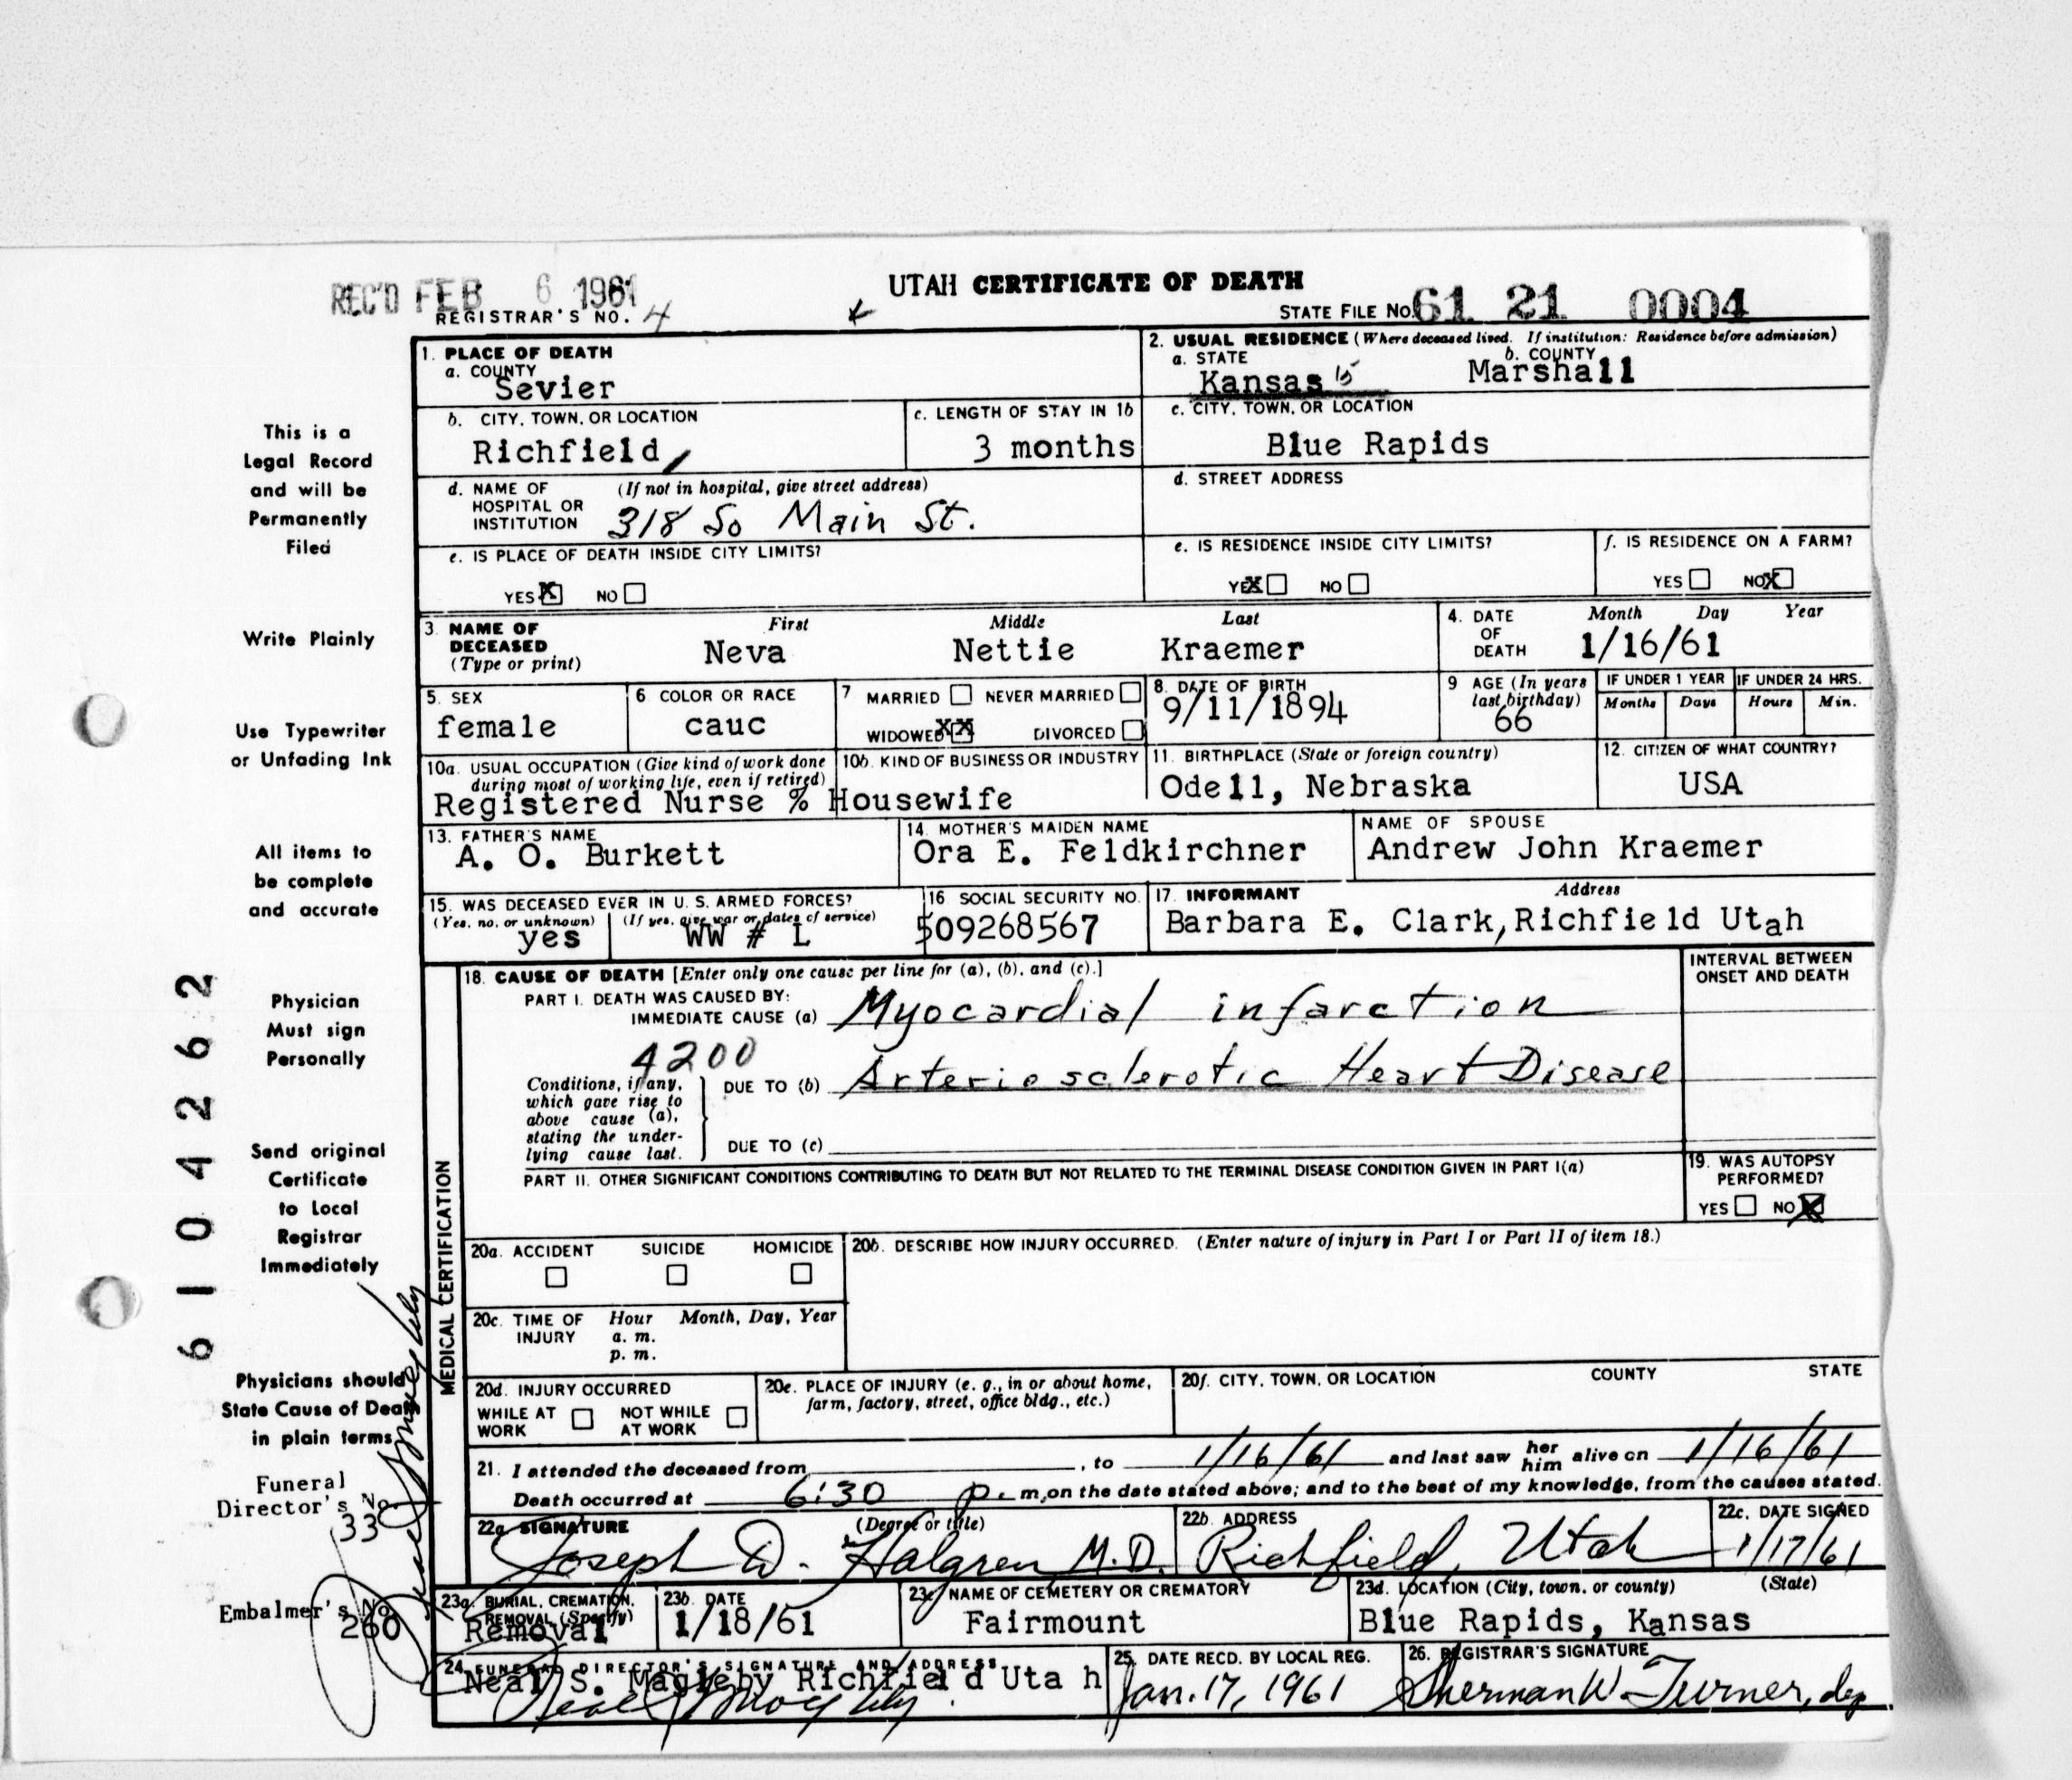 UTAH CERTIFICATE OF DEATH
REC'D FEB 6 1961
REGISTRAR'S NO. 4
STATE FILE NO. 61 21 0004
1. PLACE OF DEATH
a. COUNTY
Sevier
2. USUAL RESIDENCE (Where deceased lived. If institution: Residence before admission)
a. STATE
b. COUNTY
Kansas 15 Marshall
b. CITY, TOWN, OR LOCATION
Richfield
c. LENGTH OF STAY IN 1b
3 months
c. CITY, TOWN, OR LOCATION
Blue Rapids
d. NAME OF (If not in hospital, give street address)
HOSPITAL OR
INSTITUTION 318 So Main St.
d. STREET ADDRESS
e. IS PLACE OF DEATH INSIDE CITY LIMITS?
YES X NO
e. IS RESIDENCE INSIDE CITY LIMITS?
YES X NO
f. IS RESIDENCE ON A FARM?
YES NO X
3. NAME OF
DECEASED
(Type or print)
First Middle Last
Neva Nettie Kraemer
4. DATE
OF
DEATH
Month Day Year
1/16/61
5. SEX
female
6 COLOR OR RACE
cauc
7 MARRIED NEVER MARRIED
WIDOWED XX DIVORCED
8. DATE OF BIRTH
9/11/1894
9 AGE (In years
last birthday)
66
IF UNDER 1 YEAR
Months Days
IF UNDER 24 HRS.
Hours Min.
10a. USUAL OCCUPATION (Give kind of work done
during most of working life, even if retired)
10b. KIND OF BUSINESS OR INDUSTRY
Registered Nurse % Housewife
11. BIRTHPLACE (State or foreign country)
Odell, Nebraska
12. CITIZEN OF WHAT COUNTRY?
USA
13. FATHER'S NAME
A. O. Burkett
14. MOTHER'S MAIDEN NAME
Ora E. Feldkirchner
NAME OF SPOUSE
Andrew John Kraemer
15. WAS DECEASED EVER IN U. S. ARMED FORCES?
(Yes, no, or unknown) (If yes, give war or dates of service)
yes WW # L
16 SOCIAL SECURITY NO.
509268567
17. INFORMANT Address
Barbara E. Clark, Richfield Utah
18. CAUSE OF DEATH [Enter only one cause per line for (a), (b), and (c).]
INTERVAL BETWEEN
ONSET AND DEATH
PART I. DEATH WAS CAUSED BY:
IMMEDIATE CAUSE (a) Myocardial infarction
4200
Conditions, if any,
which gave rise to
above cause (a),
stating the under-
lying cause last.
DUE TO (b) Arteriosclerotic Heart Disease
DUE TO (c)
PART II. OTHER SIGNIFICANT CONDITIONS CONTRIBUTING TO DEATH BUT NOT RELATED TO THE TERMINAL DISEASE CONDITION GIVEN IN PART I(a)
19. WAS AUTOPSY
PERFORMED?
YES NO X
20a. ACCIDENT SUICIDE HOMICIDE
20b. DESCRIBE HOW INJURY OCCURRED. (Enter nature of injury in Part I or Part II of item 18.)
20c. TIME OF
INJURY
Hour Month, Day, Year
a. m.
p. m.
20d. INJURY OCCURRED
WHILE AT
WORK
NOT WHILE
AT WORK
20e. PLACE OF INJURY (e. g., in or about home,
farm, factory, street, office bldg., etc.)
20f. CITY, TOWN, OR LOCATION COUNTY STATE
21. I attended the deceased from , to 1/16/61 and last saw her him alive on 1/16/61
Death occurred at 6:30 p. m, on the date stated above; and to the best of my knowledge, from the causes stated.
22a SIGNATURE (Degree or title)
Joseph D. Halgren M.D.
22b. ADDRESS
Richfield, Utah
22c. DATE SIGNED
1/17/61
23a. BURIAL, CREMATION,
REMOVAL (Specify)
Removal
23b. DATE
1/18/61
23c NAME OF CEMETERY OR CREMATORY
Fairmount
23d. LOCATION (City, town, or county) (State)
Blue Rapids, Kansas
24. FUNERAL DIRECTOR'S SIGNATURE AND ADDRESS
Neal S. Magleby Richfield Utah
Neal S Magleby
25. DATE RECD. BY LOCAL REG.
Jan. 17, 1961
26. REGISTRAR'S SIGNATURE
Sherman W. Turner, dep
This is a
Legal Record
and will be
Permanently
Filed
Write Plainly
Use Typewriter
or Unfading Ink
All items to
be complete
and accurate
Physician
Must sign
Personally
Send original
Certificate
to Local
Registrar
Immediately
Physicians should
State Cause of Death
in plain terms
Funeral
Director's No.
33
Embalmer's No.
260
Neal S Magleby
MEDICAL CERTIFICATION
61 04262